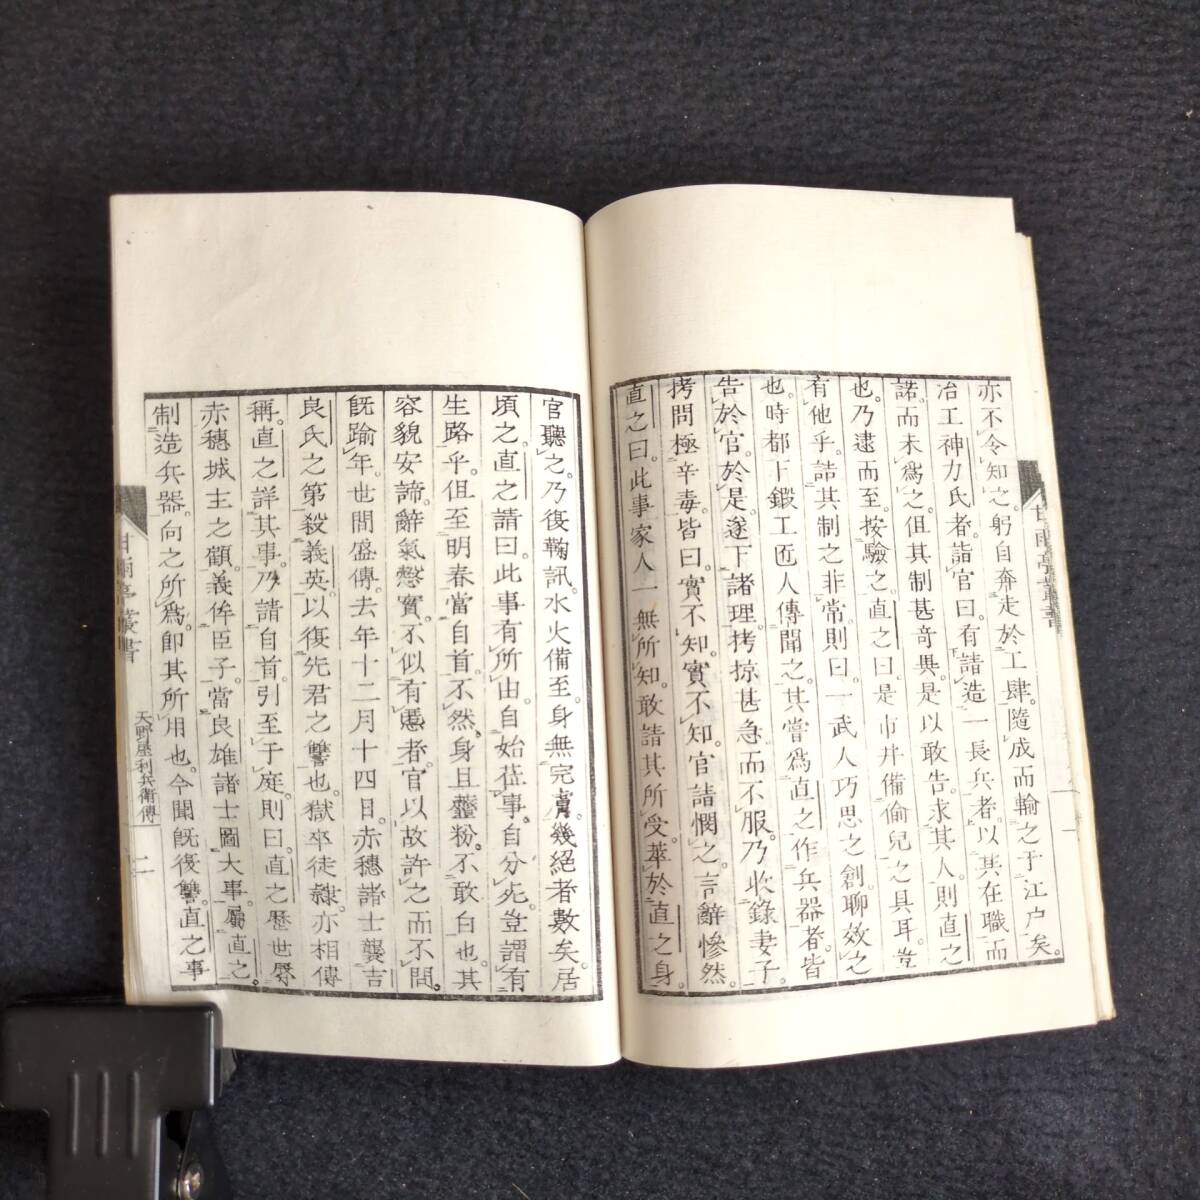 亦不令知之。躬自奔走於工肆。隨成而輸之于江戸矣。
冶工神力氏者。詣官曰。有請造一長兵者。以其在職而
諾。而未爲之。但其制甚奇異。是以敢告。求其人。則直之
也。乃逮而至。按驗之。直之曰。是市井備偷兒之具耳。豈
有他乎。詰其制之非常。則曰。一武人巧思之創。聊效之
也。時都下鍛工匠人傳聞之。其嘗爲直之作兵器者。皆
告於官。於是遂下諸理。拷掠甚急而不服。乃收錄妻子。
拷問極辛毒。皆曰。實不知。實不知。官請憫之。言辭慘然。
直之曰。此事家人一無所知。敢請其所受。萃於直之身。
官聽之。乃復鞠訊。水火備至。身無完膚。幾絕者數矣。居
頃之。直之請曰。此事有所由。自始莅事。自分死。豈謂有
生路乎。但至明春當自首。不然。身且虀粉。不敢白也。其
容貌安諦。辭氣慤實。不似有慝者。官以故許之而不問。
既踰年。世間盛傳。去年十二月十四日。赤穗諸士襲吉
良氏之第。殺義英。以復先君之讐也。獄卒徒隸。亦相傳
稱。直之詳其事。乃請自首。引至于庭。則曰。直之歷世辱
赤穗城主之顧。義侔臣子。當良雄諸士圖大事。屬直之
制造兵器。向之所爲。即其所用也。今聞既復讐。直之事
甘雨亭叢書
天野屋利兵衛傳
二
甘雨亭叢書